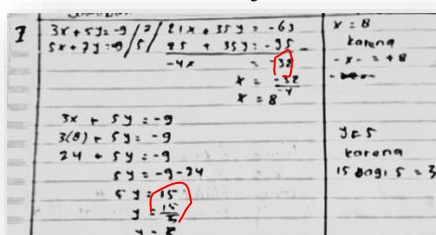 1
3x + 5y = -9 / 7 / 21x + 35y = -63
5x + 7y = -9 / 5 / 25 + 35y = -95
-4x = -32
x = -32
-4
x = 8
3x + 5y = -9
3(8) + 5y = -9
24 + 5y = -9
5y = -9-24
5y = 15
y = 15
5
y = 5
x = 8
karena
- x - = + 8
y = 5
karena
15 bagi 5 = 3